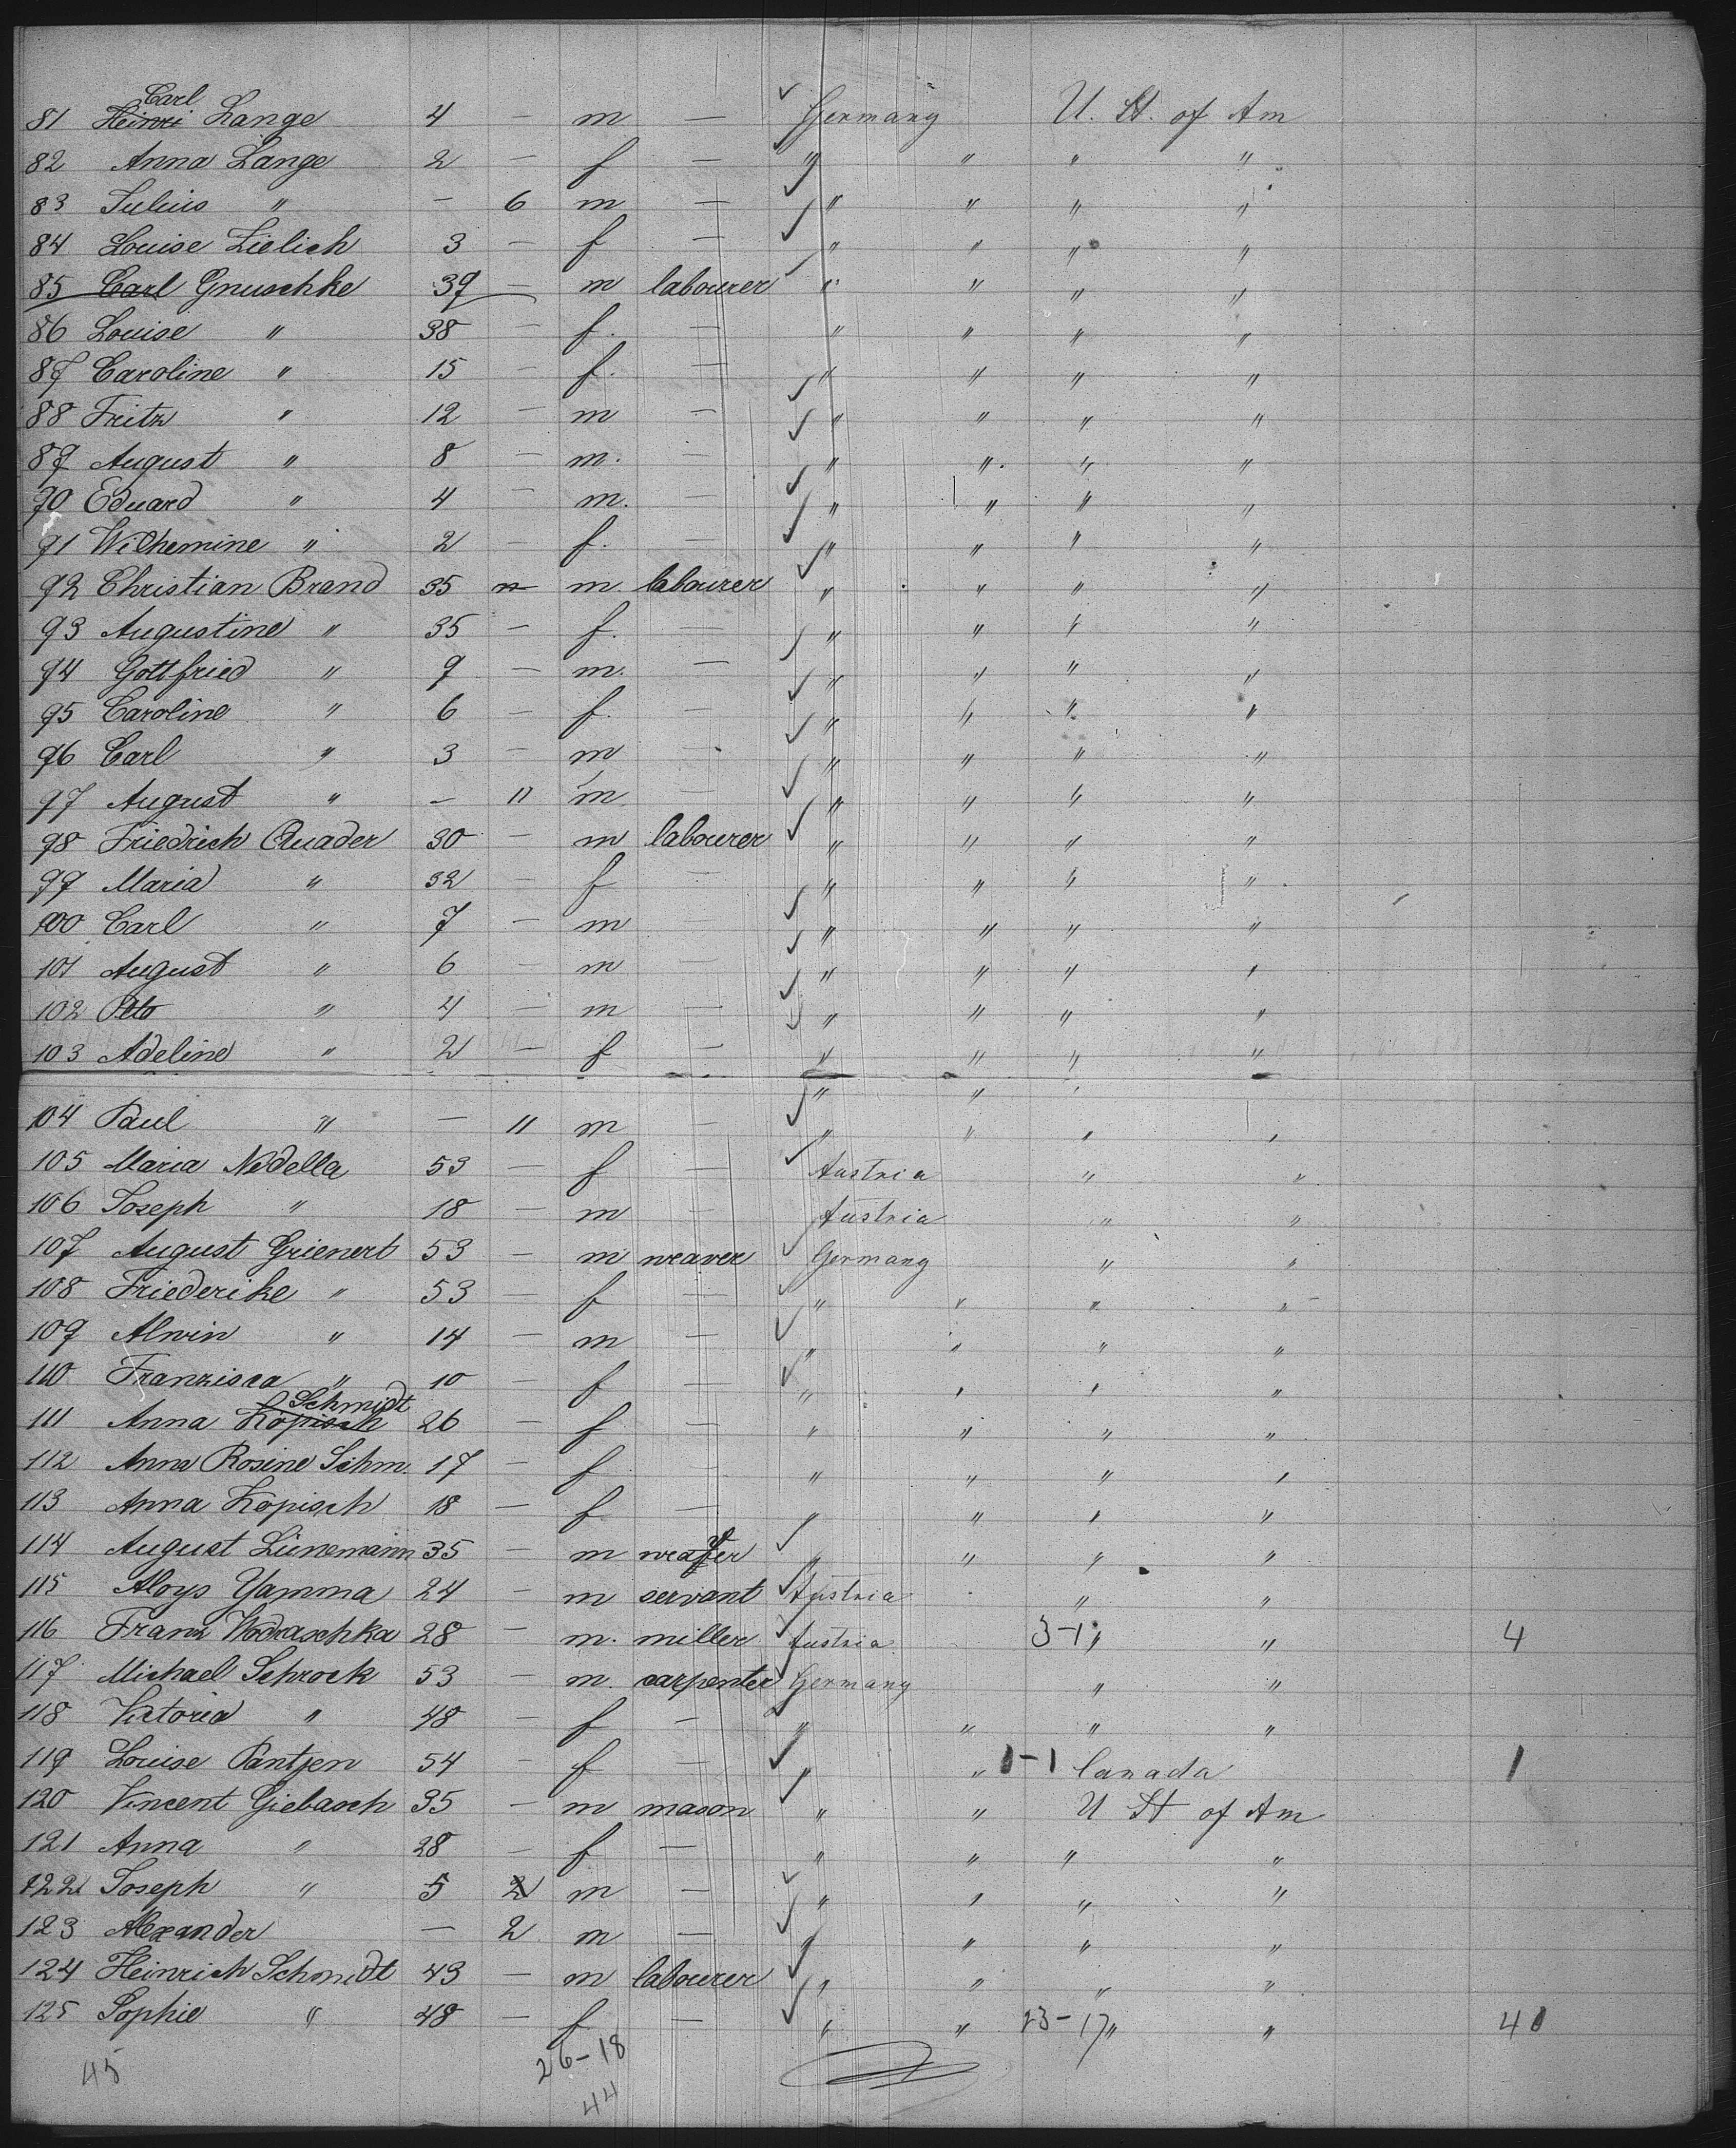 Carl
81 Heinri Lange 4 — m — Germany U. St. of Am
82 Anna Lange 2 — f — " " " "
83 Julius " — 6 m — " " " "
84 Louise Zielich 3 — f — " " " "
85 Carl Gnuschke 39 — m labourer " " " "
86 Louise " 38 — f. — " " " "
87 Caroline " 15 — f. — " " " "
88 Fritz " 12 — m — " " " "
89 August " 8 — m. — " " " "
90 Eduard " 4 — m. — " " " "
91 Wilhemine " 2 — f. — " " " "
92 Christian Brand 35 — m. labourer " " " "
93 Augustine " 35 — f. — " " " "
94 Gottfried " 9 — m. — " " " "
95 Caroline " 6 — f. — " " " "
96 Carl " 3 — m — " " " "
97 August " — 11 m — " " " "
98 Friedrich Quader 30 — m labourer " " " "
99 Maria " 32 — f — " " " "
100 Carl " 7 — m — " " " "
101 August " 6 — m — " " " "
102 Otto " 4 — m — " " " "
103 Adeline " 2 — f — " " " "
104 Paul " — 11 m — " " " "
105 Maria Nedella 53 — f — Austria " "
106 Joseph " 18 — m — Austria " "
107 August Grienert 53 — m weaver Germany " "
108 Friederike " 53 — f — " " " "
109 Alwin " 14 — m — " " " "
110 Franzisca " 10 — f — " " " "
Schmidt
111 Anna Kopisch 26 — f — " " " "
112 Anna Rosine Schm. 17 — f — " " " "
113 Anna Kopisch 18 — f — " " " "
114 August Lünemann 35 — m weafer " " " "
115 Aloys Yamma 24 — m servant Austria " "
116 Franz Wodraschka 28 — m. miller Austria 3-1 " " 4
117 Michael Schrock 53 — m. carpenter Germany " "
118 Victoria " 48 — f — " " " "
119 Louise Pantzen 54 — f — " " 1-1 Canada 1
120 Vincent Giebasch 35 — m mason " " U St of Am
121 Anna " 28 — f — " " " "
122 Joseph " 5 2 m — " " " "
123 Alexander — 2 m — " " " "
124 Heinrich Schmidt 43 — m labourer " " " "
125 Sophie " 48 — f — " " 23-17 " " 40
45 26-18
44